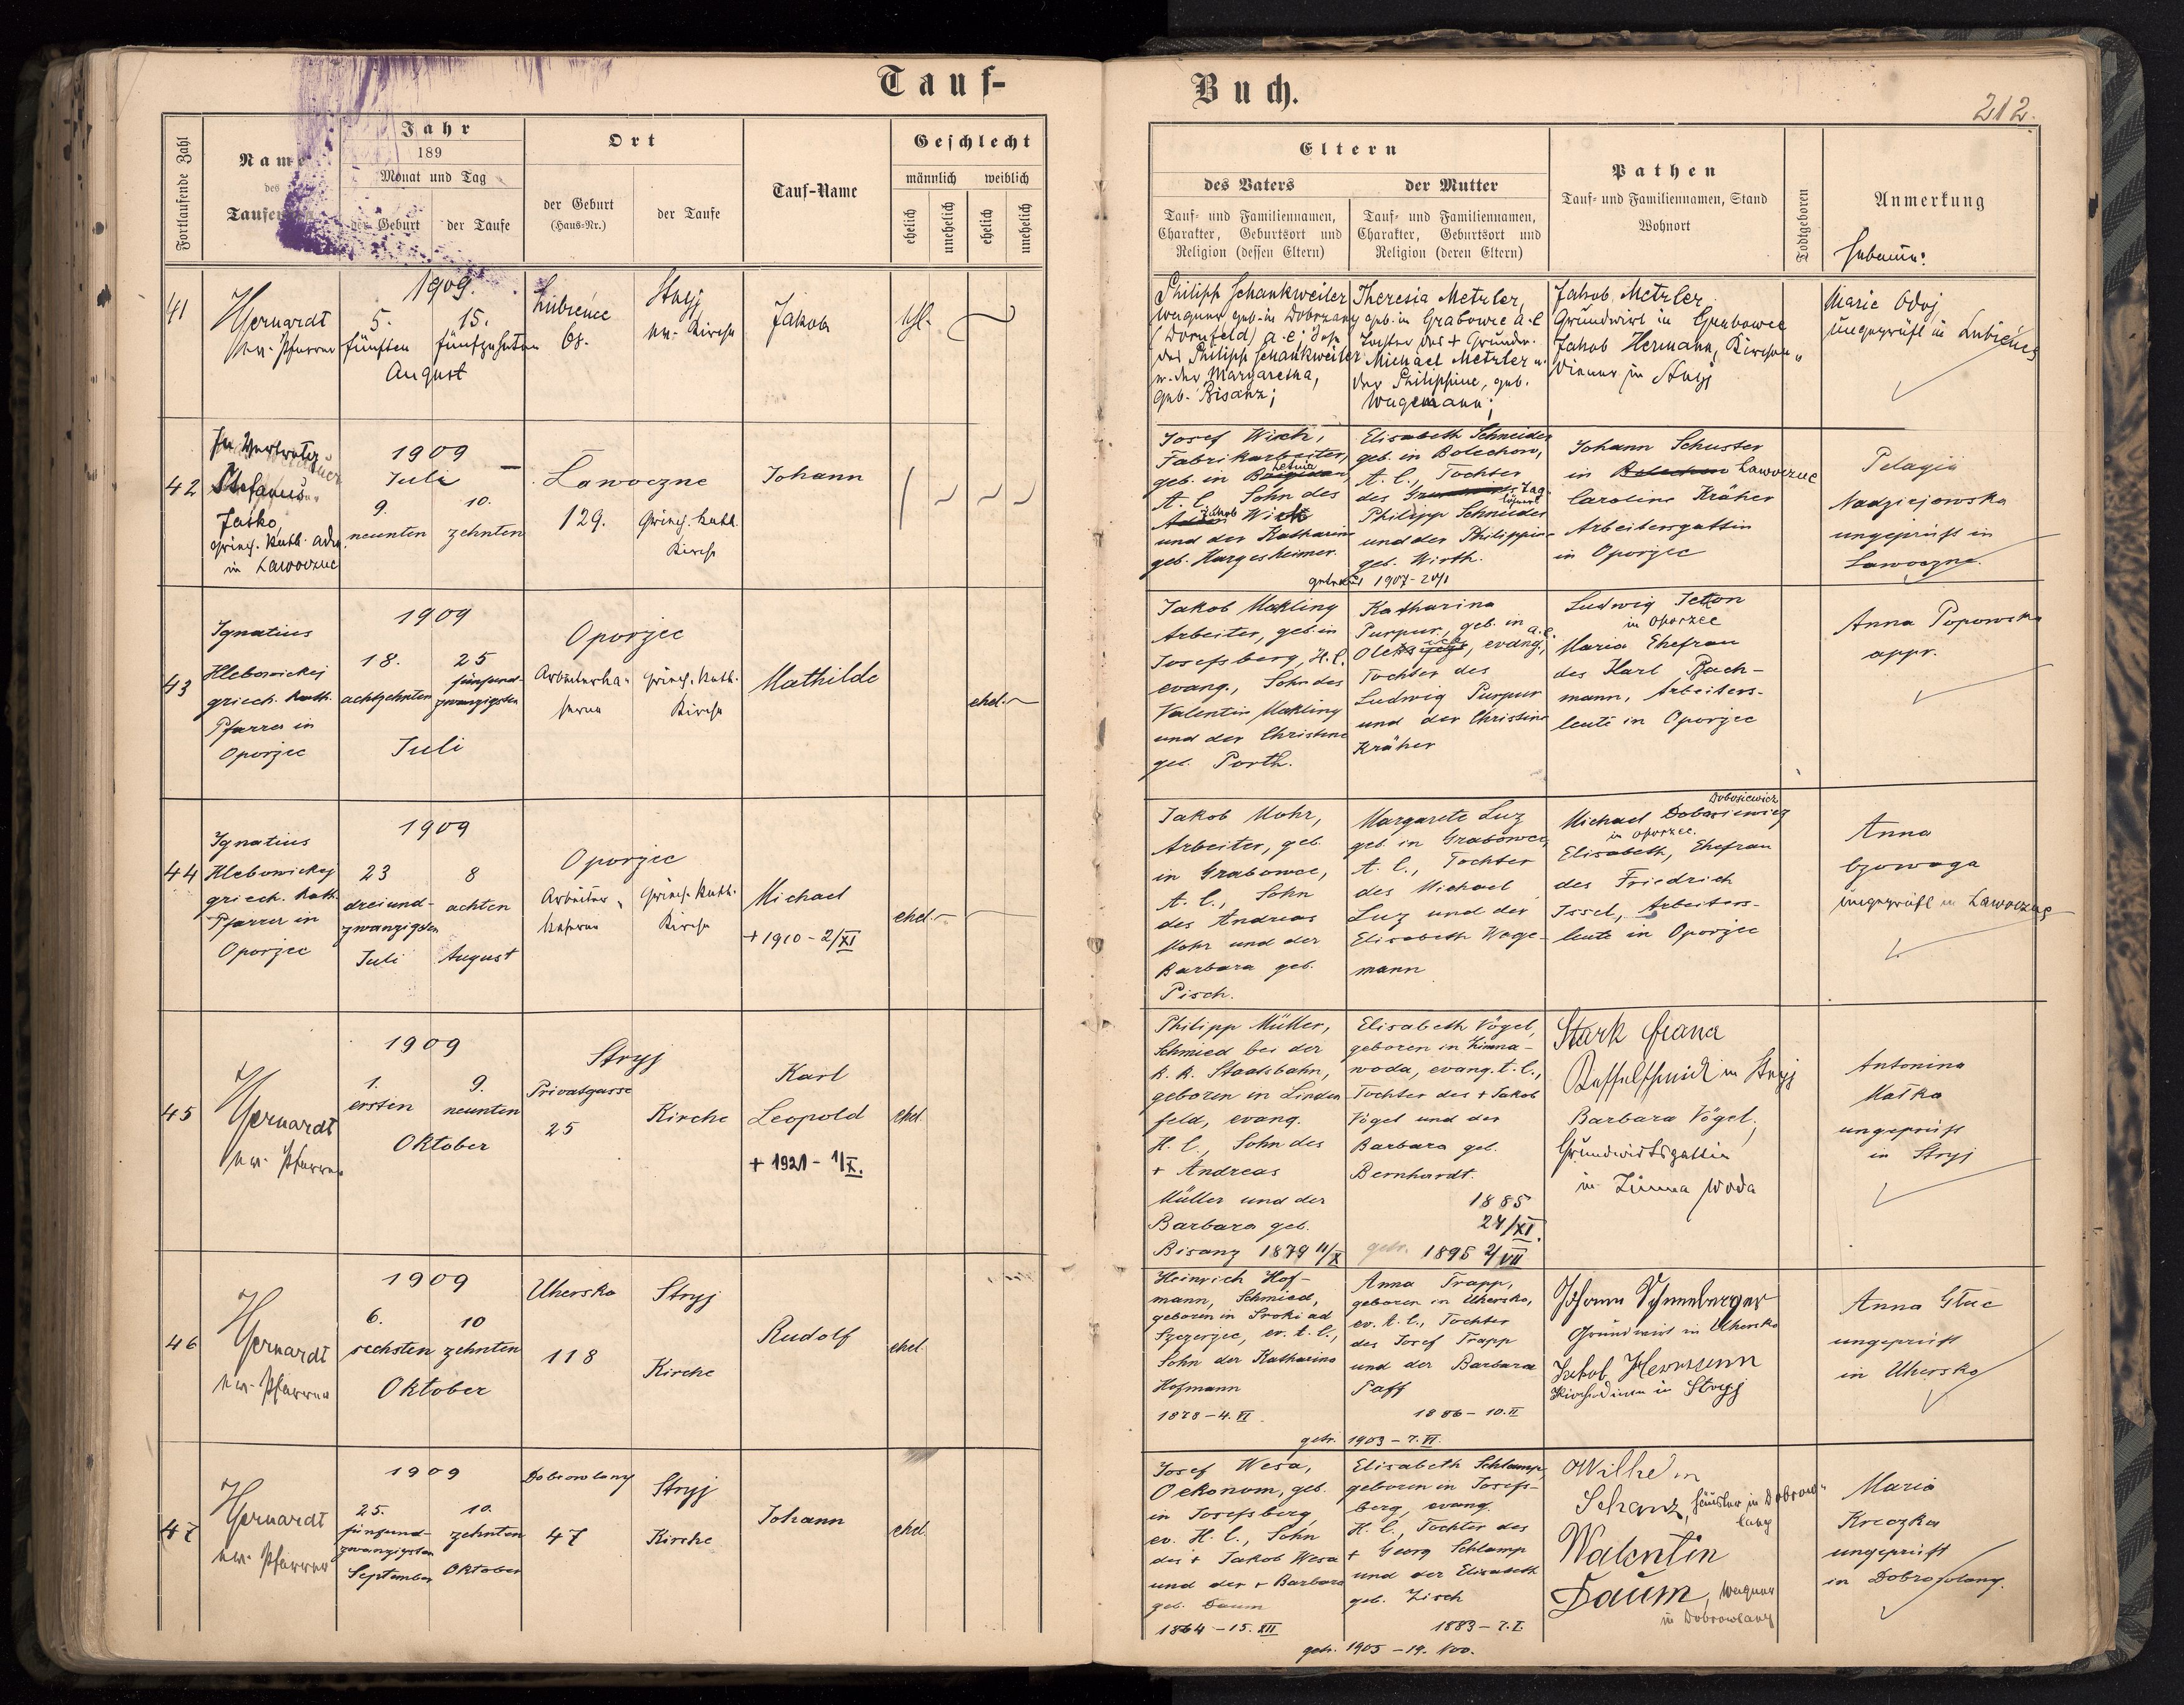 Tauf-
Buch.
212.
Fortlaufende Zahl
Name
des
Jahr
189
Monat und Tag
der Geburt
der Taufe
Ort
der Geburt
(Haus-Nr.)
der Taufe
Tauf-Name
Geschlecht
männlich
weiblich
ehelich
unehelich
ehelich
unehelich
Eltern
des Vaters
Tauf- und Familiennamen,
Charakter, Geburtsort und
Religion (dessen Eltern)
der Mutter
Tauf- und Familiennamen,
Charakter, Geburtsort und
Religion (deren Eltern)
Pathen
Tauf- und Familiennamen, Stand
Wohnort
Todtgeboren
Anmerkung
Hebamme:
41
1909.
5. 15.
fünften fünfzehnten
August
68.
Stryj
ev. Kirche
Jakob
ehl.
Philipp Schankweiler
Wagner geb. in Dobrzany
(Dornfeld) a. c; Sohn
des Philipp Schankweiler
u. der Margaretha,
geb. Bisanz;
Theresia Metzler,
geb. in Grabowce a. c
Tochter des + Grundw.
Michael Metzler u.
der Philippine, geb.
Wagemann;
Jakob Metzler
Grundwirt in Grabowce
Jakob Hermann, Kirchen-
diener in Stryj
Marie
ungeprüft in
42
In Vertretg.
Jasko,
griech. kath.
in Lawoczne
1909
Juli
9. 10.
neunten zehnten
Lawoczne
129.
griech. kath.
Kirche
Johann
Josef Wirth,
Fabrikarbeiter,
geb. in
A. C. Sohn des
Jakob
und der Katharina
geb. Hargesheimer.
Elisabeth Schneider
geb. in Bolechow,
A. C., Tochter
des
Philipp Schneider
und der Philippine
geb. Wirth.
getraut 1907-20/1
Johann Schuster
in Lawoczne
Carolina Kräher
Arbeitersgattin
in Oporzec
Pelagia
Nadziejowska
ungeprüft in
Lawoczne.
43
Ignatius
Hlebowickij
griech. kath.
Pfarrer in
Oporzec
1909
18. 25
achtzehnten fünfund-
zwanzigsten
Juli
Oporzec
Arbeiterka-
serne
griech. kath.
Kirche
Mathilde
ehel.
Jakob Makling
Arbeiter, geb. in
Josefsberg, H. C.
evang., Sohn des
Valentin Makling
und der Christine
geb. Porth.
Katharina
Purpur, geb. in
evang.,
Tochter des
Ludwig Purpur
und der Christine
Kräher
Ludwig
in Oporzec
Maria Ehefrau
des Karl Bach-
mann, Arbeiters-
leute in Oporzec
Anna Popowska
appr.
44
Ignatius
Hlebowickij
griech. kath.
Pfarrer in
Oporzec
1909
23 8
dreiund- achten
zwanzigsten
Juli August
Oporzec
Arbeiter-
kaserne
griech. kath.
Kirche
Michael
+ 1910 - 2/XI
ehel.
Jakob Mohr,
Arbeiter, geb.
in Grabowce,
A. C., Sohn
des Andreas
Mohr und der
Barbara geb.
Pisch.
Margarete Luz
geb. in Grabowce,
A. C., Tochter
des Michael
Luz und der
Elisabeth Wage-
mann
Dobosiewicz
Michael Dobosiewicz
in Oporzec.
Elisabeth, Ehefrau
des Friedrich
Issel, Arbeiters-
leute in Oporzec
Anna
ungeprüft in Lawoczne
45
ev. Pfarrer
1909
1. 9.
ersten neunten
Oktober
Stryj
Privatgasse
25
Kirche
Karl
Leopold
+ 1921 - 1/X.
ehel.
Philipp Müller,
Schmied bei der
k. k. Staatsbahn,
geboren in Linden
feld, evang.
H. C., Sohn des
+ Andreas
Müller und der
Barbara geb.
Bisanz 1879 11/X
Elisabeth Vögel,
geboren in Zimna-
woda, evang. A. C.,
Tochter des + Jakob
Vögel und der
Barbara geb.
Bernhardt.
1885
27/XI.
getr. 1895 2/VII
Stark
Kesselschmied in Stryj
Barbara Vögel,
Grundwirtsgattin
in Zimna Woda
Antonina
Matka
ungeprüft
in Stryj
46
ev. Pfarrer
1909
6. 10
sechsten zehnten
Oktober
Uhersko
118
Stryj
Kirche
Rudolf
ehel.
Heinrich Hof-
mann, Schmied,
geboren in Sroki ad
Szczerzec, ev. A. C.,
Sohn der Katharina
Hofmann
1878-4. VI.
Anna Trapp,
geboren in Uhersko,
ev. A. C., Tochter
des Josef Trapp
und der Barbara
Paff
1886-10. II
getr. 1903-7. VI.
Johann Schneeberger
Grundwirt in Uhersko
Jakob Hermann
Kirchendiener in Stryj
Anna Głuc
ungeprüft
in Uhersko
47
ev. Pfarrer
1909
25. 10.
fünfund- zehnten
zwanzigsten
September Oktober
Dobrowlany
47
Stryj
Kirche
Johann
ehel.
Josef Wesa,
Oekonom, geb.
in Josefsberg,
ev. H. C., Sohn
des + Jakob Wesa
und der + Barbara
geb. Daum
1864-15. XII
Elisabeth Schlamp,
geboren in Josefs-
berg, evang.
H. C., Tochter des
+ Georg Schlamp
und der Elisabeth
geb. Zisch
1883-7. I.
getr. 1905-19. Nov.
Wilhelm
Schanz, Häusler in Dobrow-
lany
Walentin
Daum, Wagner
in Dobrowlany
Maria
Kreczka
ungeprüft
in Dobrowlany.